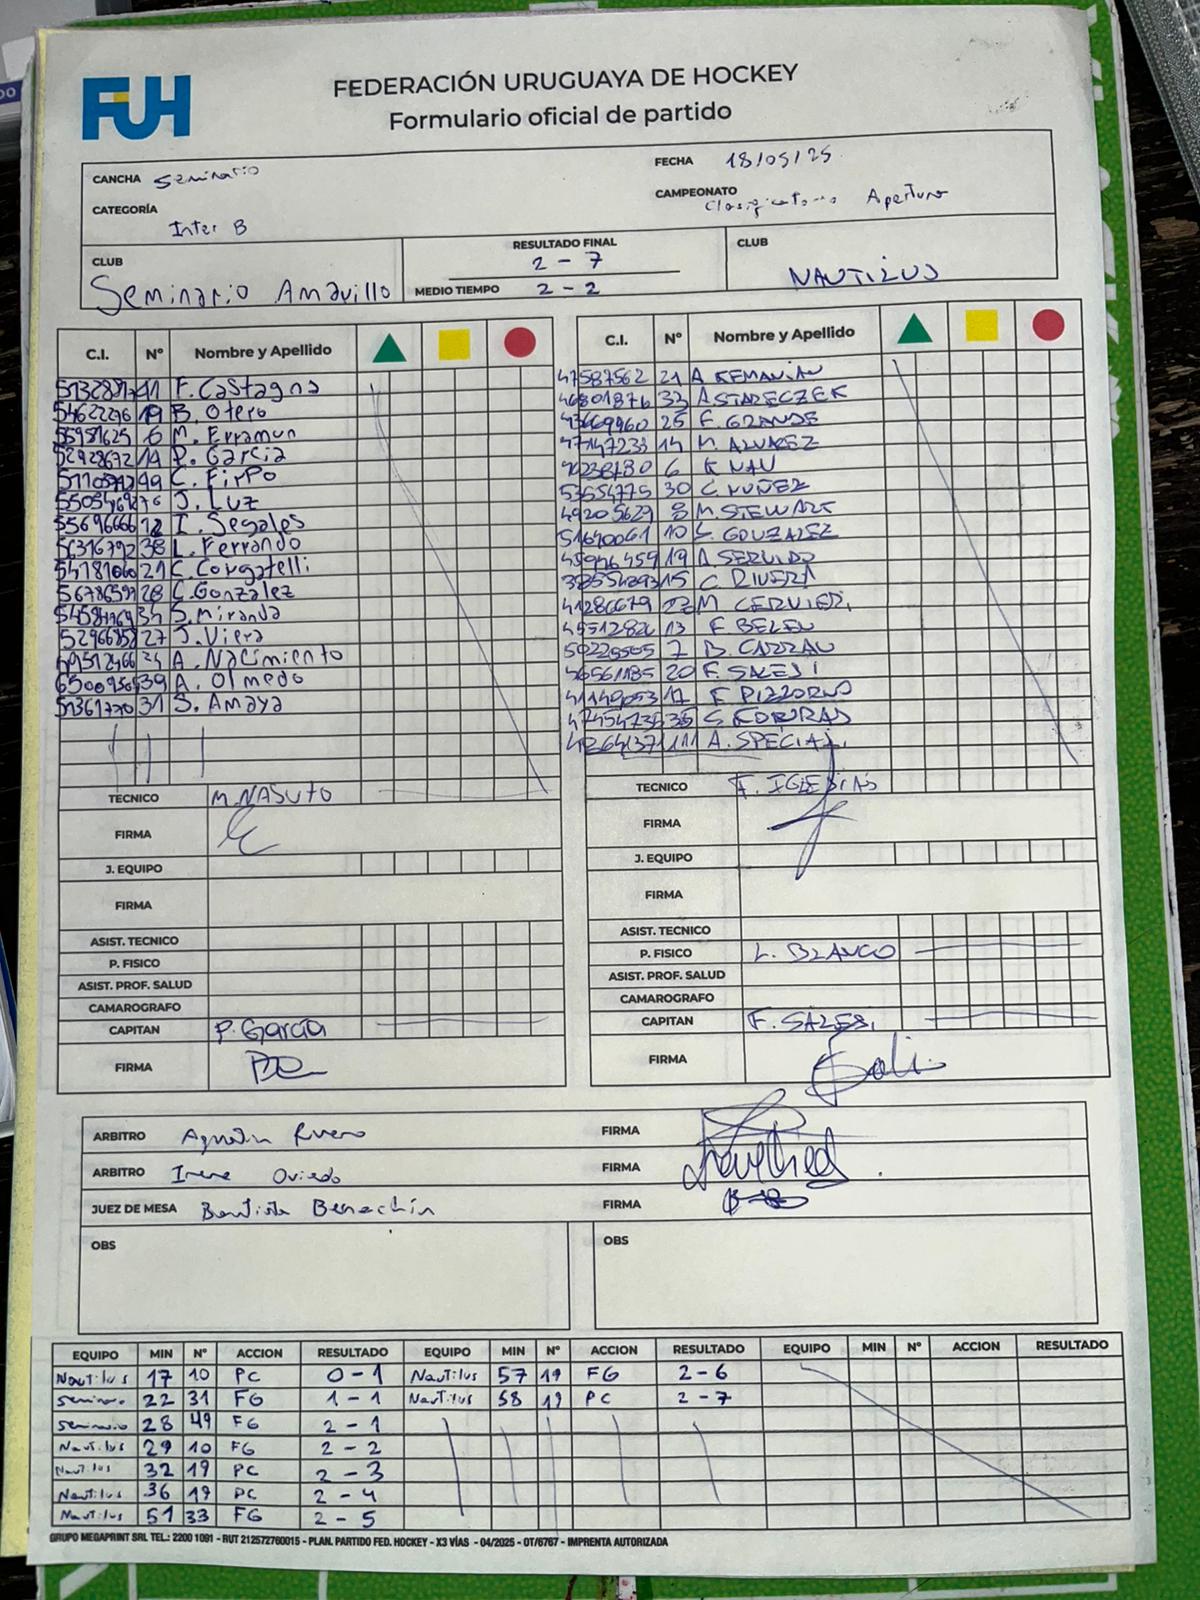 FUH
FEDERACIÓN URUGUAYA DE HOCKEY
Formulario oficial de partido
CANCHA Seminario FECHA 18/05/25
CATEGORÍA Inter B CAMPEONATO Clasificatorio Apertura
CLUB Seminario Amarillo RESULTADO FINAL 2 - 7 MEDIO TIEMPO 2 - 2 CLUB NAUTILUS
C.I. Nº Nombre y Apellido
11 F. Castagna
54622296 19 B. Otero
55981625 6 M. Erramun
52928672 14 P. Garcia
49 C. Firpo
76 J. Luz
55696666 12 I. Segales
56316792 38 L. Ferrando
54181060 21 C. Corgatelli
28 C. Gonzalez
34 S. Miranda
27 J. Viera
24 A. Nacimiento
39 A. Olmedo
31 S. Amaya
TECNICO M. NASUTO
FIRMA
J. EQUIPO
FIRMA
ASIST. TECNICO
P. FISICO
ASIST. PROF. SALUD
CAMAROGRAFO
CAPITAN P. García
FIRMA
C.I. Nº Nombre y Apellido
47587562 21 A KEMANIAN
46801876 33 A STARECZEK
43669960 25 F. GRANDE
47147233 14 M. ALVAREZ
6 K NAU
53654775 30 C. NUÑEZ
49205629 8 M. STEWART
51690061 10 S. GOUZALEZ
45946459 19 A. SERVIDO
15 C. RIVERA
41286679 22 M. CERVIERI
45512826 13 F. BELEN
50226505 7 B. CARRAU
46561185 20 F. SALESI
41149053 17 F. PIZZORNO
35 S.
111 A. SPECIAL
TECNICO F. IGLESIAS
FIRMA
J. EQUIPO
FIRMA
ASIST. TECNICO
P. FISICO L. BLANCO
ASIST. PROF. SALUD
CAMAROGRAFO
CAPITAN F. SALESI
FIRMA
ARBITRO Agustin Rivero FIRMA
ARBITRO Irene Oviedo FIRMA
JUEZ DE MESA Bautista Benechin FIRMA
OBS OBS
EQUIPO MIN Nº ACCION RESULTADO EQUIPO MIN Nº ACCION RESULTADO EQUIPO MIN Nº ACCION RESULTADO
Nautilus 17 10 PC 0 - 1 Nautilus 57 19 FG 2 - 6
Seminario 22 31 FG 1 - 1 Nautilus 58 19 PC 2 - 7
Seminario 28 49 FG 2 - 1
Nautilus 29 10 FG 2 - 2
Nautilus 32 19 PC 2 - 3
Nautilus 36 19 PC 2 - 4
Nautilus 51 33 FG 2 - 5
GRUPO MEGAPRINT SRL TEL.: 2200 1091 - RUT 212572760015 - PLAN. PARTIDO FED. HOCKEY - X3 VÍAS - 04/2025 - OT/6767 - IMPRENTA AUTORIZADA